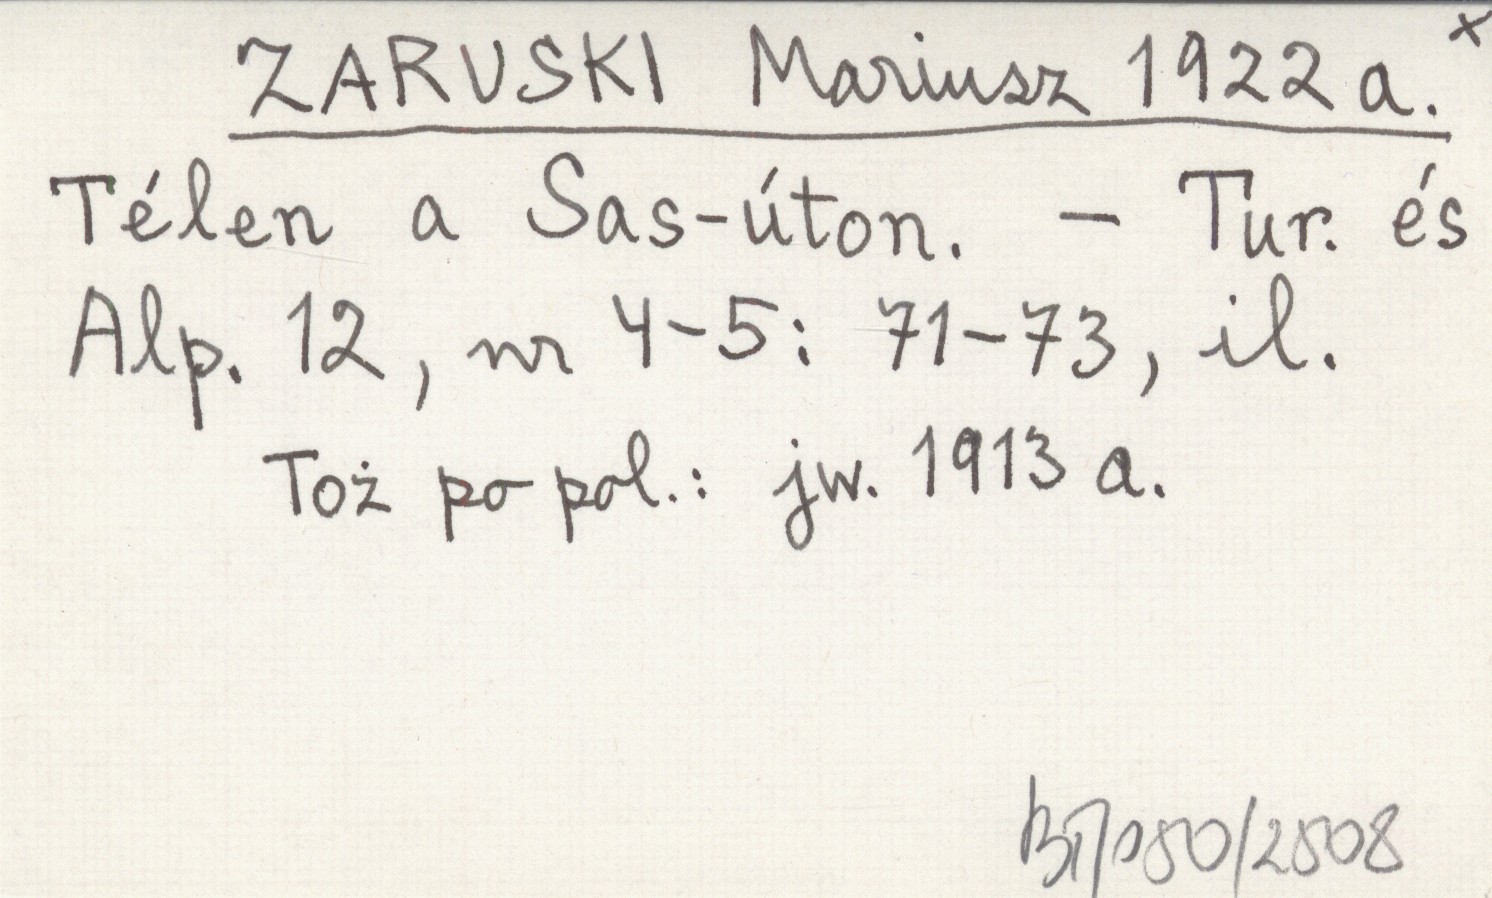 ZARUSKI Mariusz 1922 a. x
Télen a Sas-úton. - Tur. és
Alp. 12, nr 4-5: 71-73, il.
Toż po pol.: jw. 1913 a.